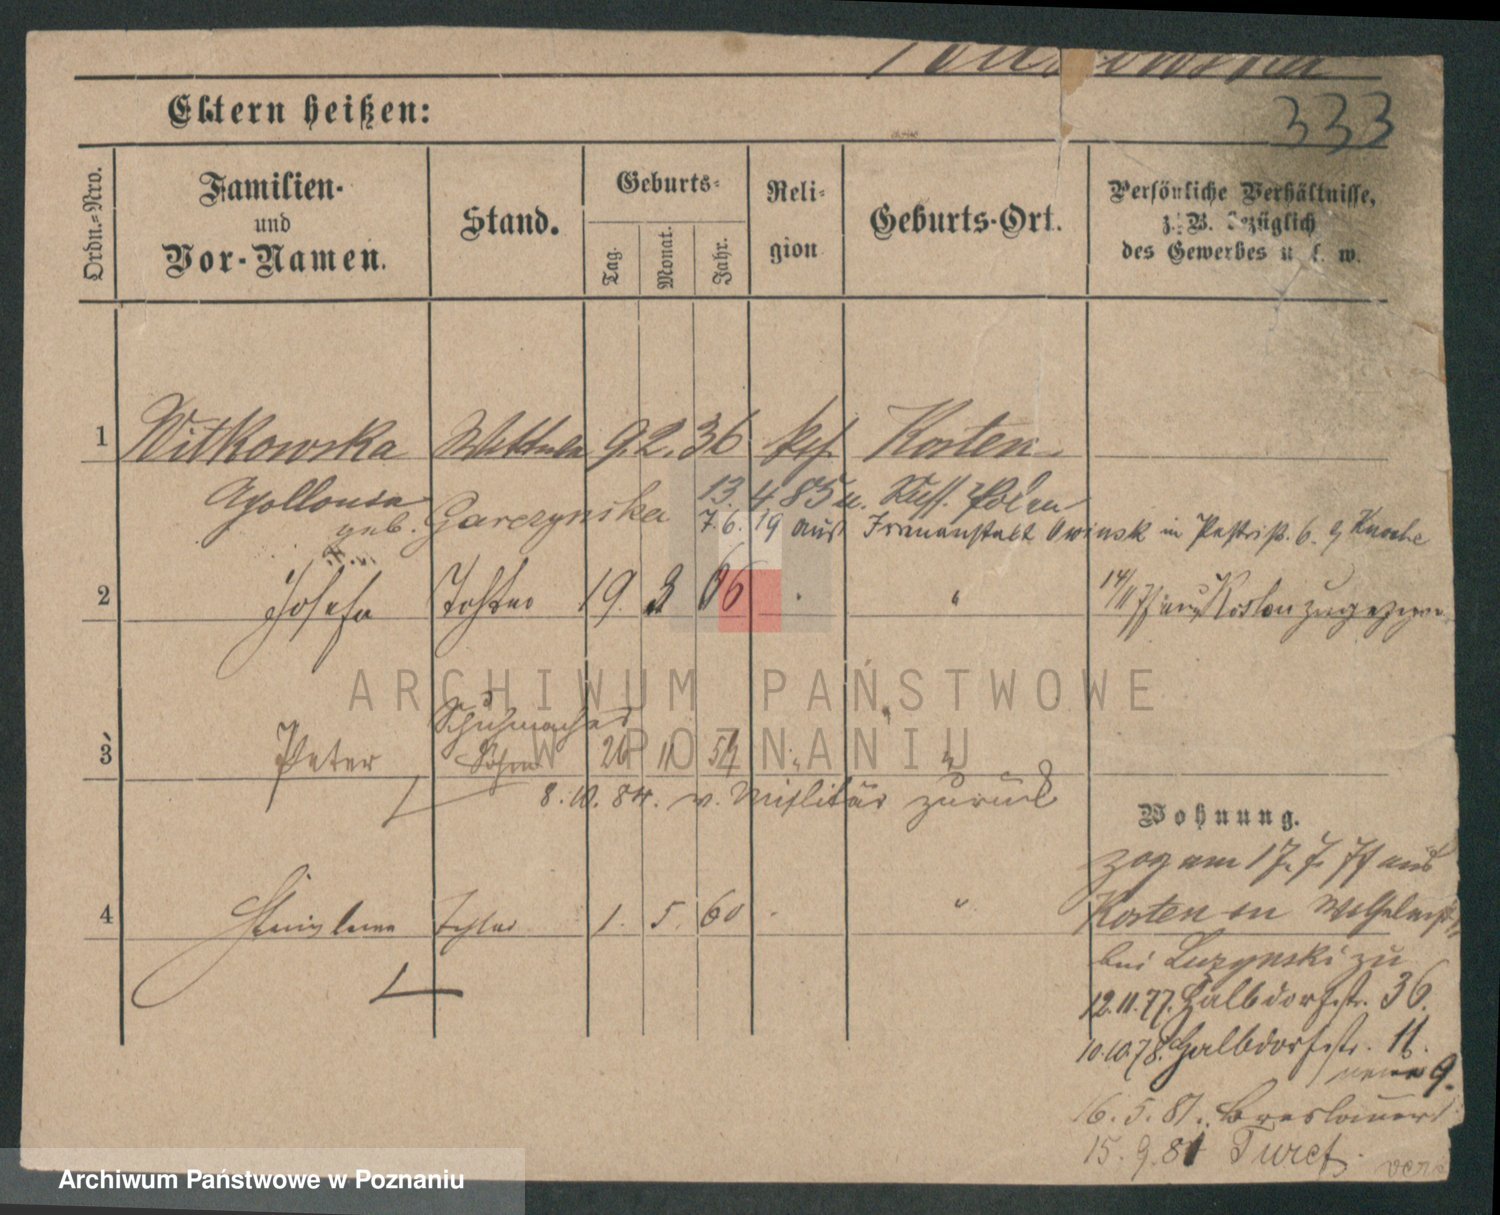 333
Eltern heißen:
Ordn.=Nro.
Familien-
und
Vor-Namen.
Stand.
Geburts-
Tag.
Monat.
Jahr.
Reli-
gion
Geburts-Ort.
Persönliche Verhältnisse,
z. B. bezüglich
des Gewerbes u. s. w.
1 Witkowska 9. 2. 36 Kosten
Apollonia geb. Garczynska 13. 4. 85 n. Russ. Polen
7. 6. 19 aus Irrenanstalt Owinsk in
2 Josefa Tochter 19. 3 66 "
zugezogen
Schuhmacher
3 Peter Sohn 26 11 54 "
8. 10. 84. v. Militär zurück
Wohnung.
zog am 17. 7. 77 aus
4 Tochter 1. 5. 60 "
Kosten
bei zu
12.11.77. Halbdorfstr. 36.
10.10.78. Halbdorfstr. 11.
9.
16. 5. 81. Breslauerst
15. 9. 81
ARCHIWUM PAŃSTWOWE
W POZNANIU
Archiwum Państwowe w Poznaniu